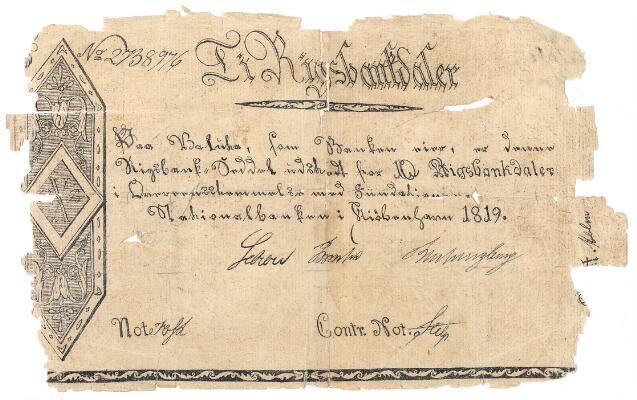 No 273896 Ti Rigsbankdaler
Paa Valuta, som Banken eier, er denne
Rigsbank-Seddel udstædt for 10 Rigsbankdaler
i Overeensstemmelse med Fundationen
Nationalbanken i Kiöbenhavn 1819.
Schou
Not.
Contr. Not.